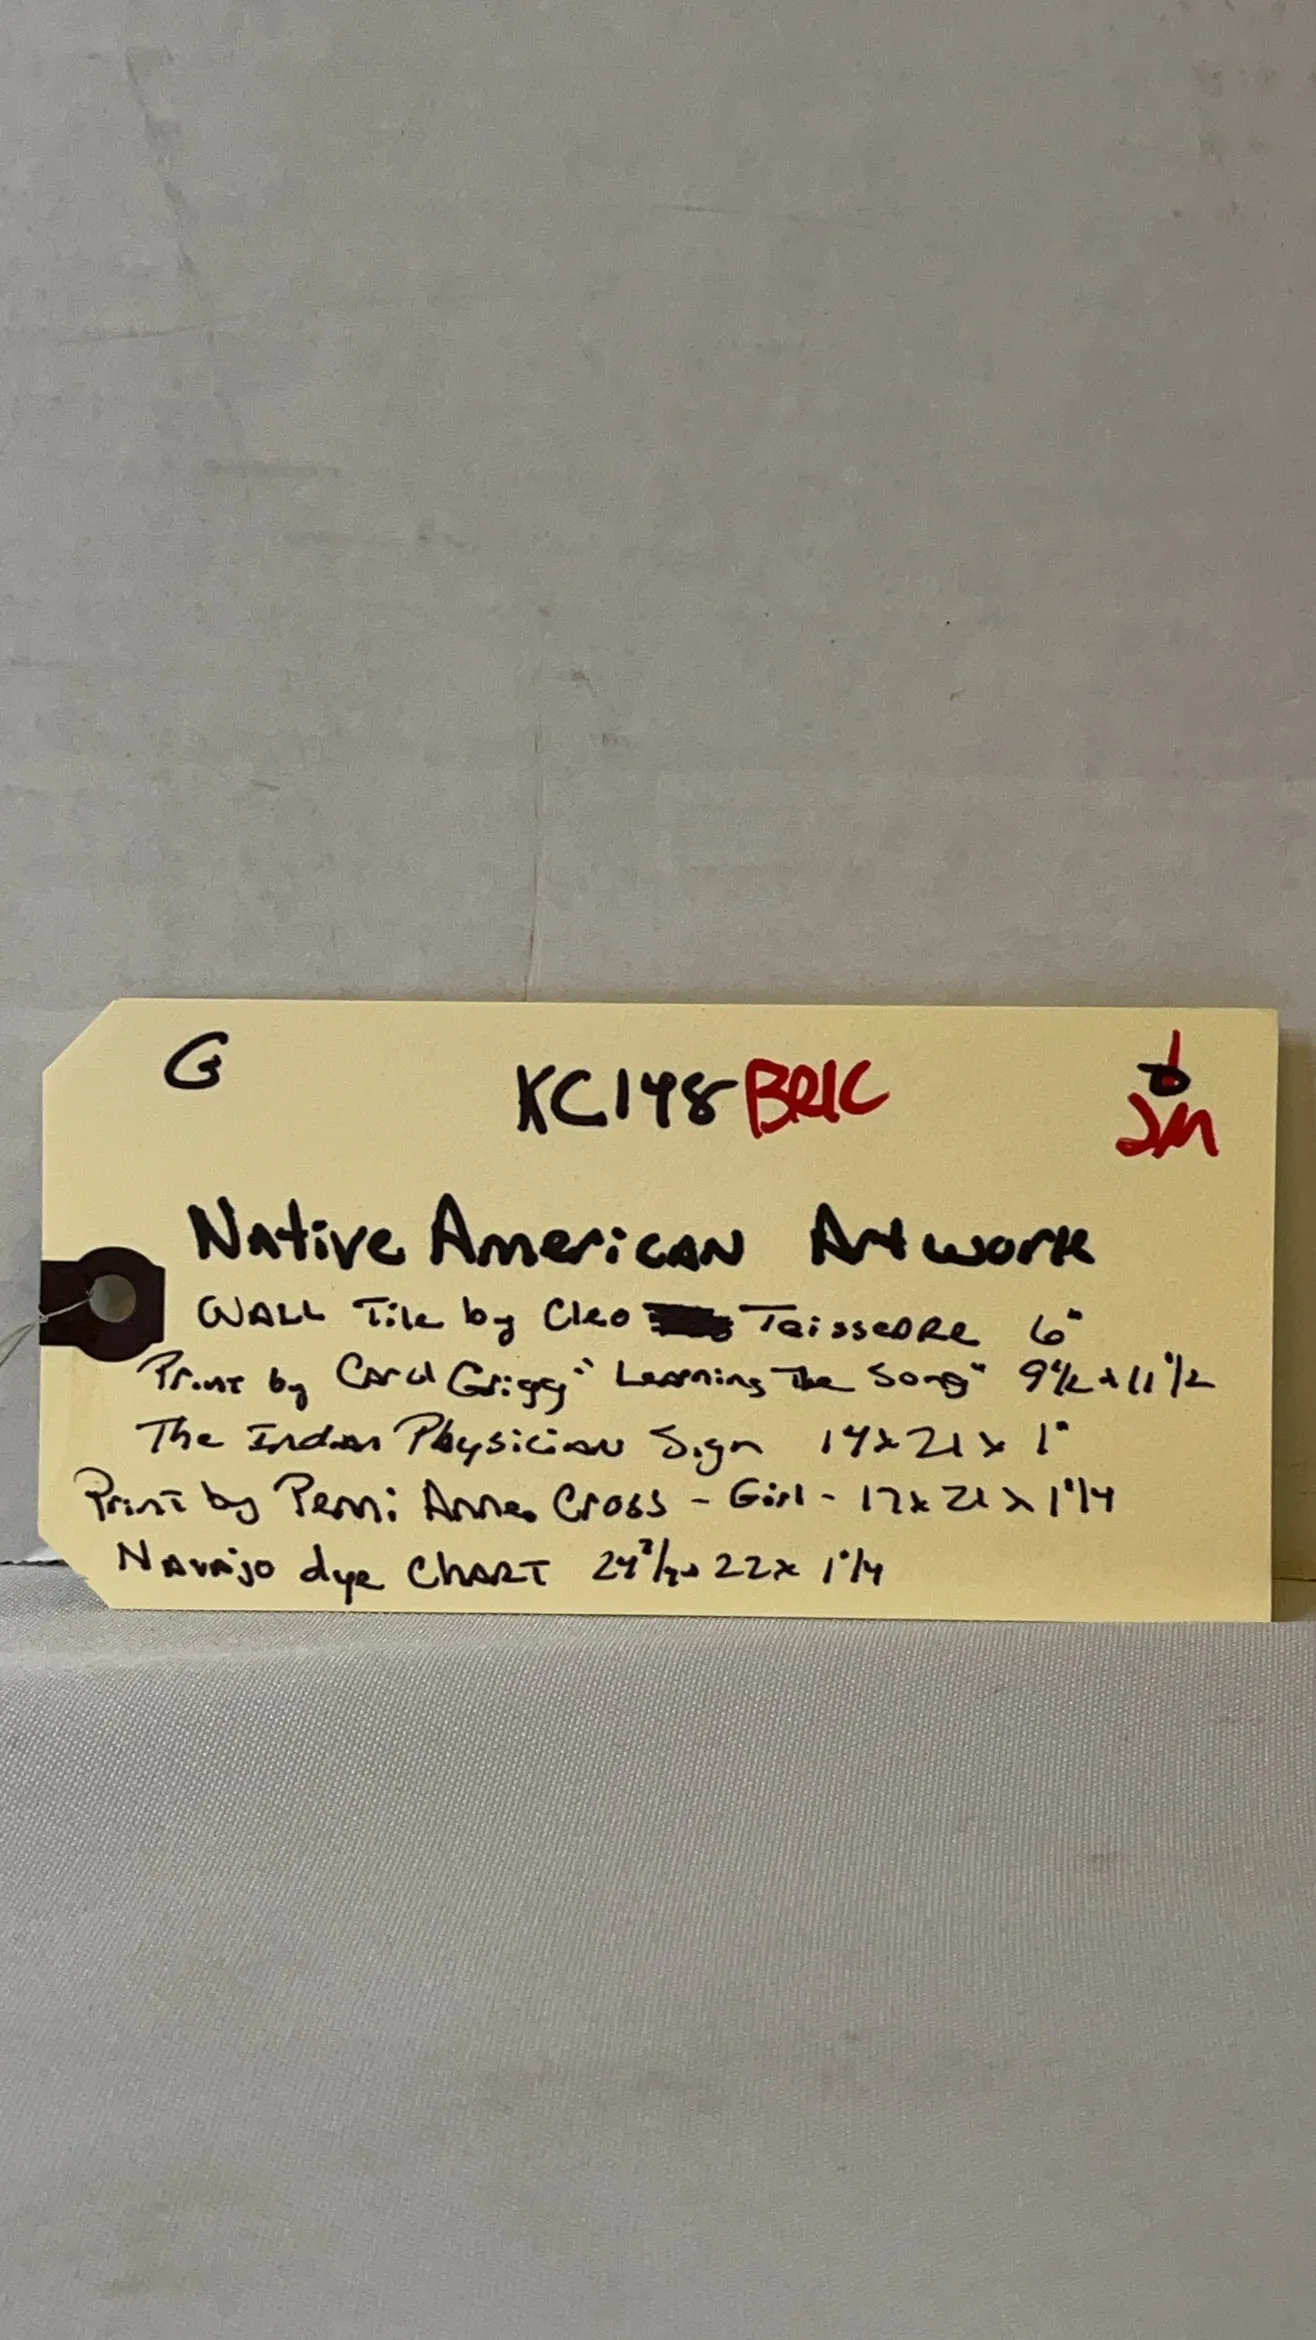 G KC148 BRIC JM
Native American Artwork
Wall Tile by Cleo Teissedre 6"
Print by Carol Grigg "Learning The Song" 9 1/2 x 11 1/2
The Indian Physician Sign 14x21x 1"
Print by Penni Anne Cross - Girl - 17x21x 1 1/4
Navajo dye CHART 22x 1 1/4